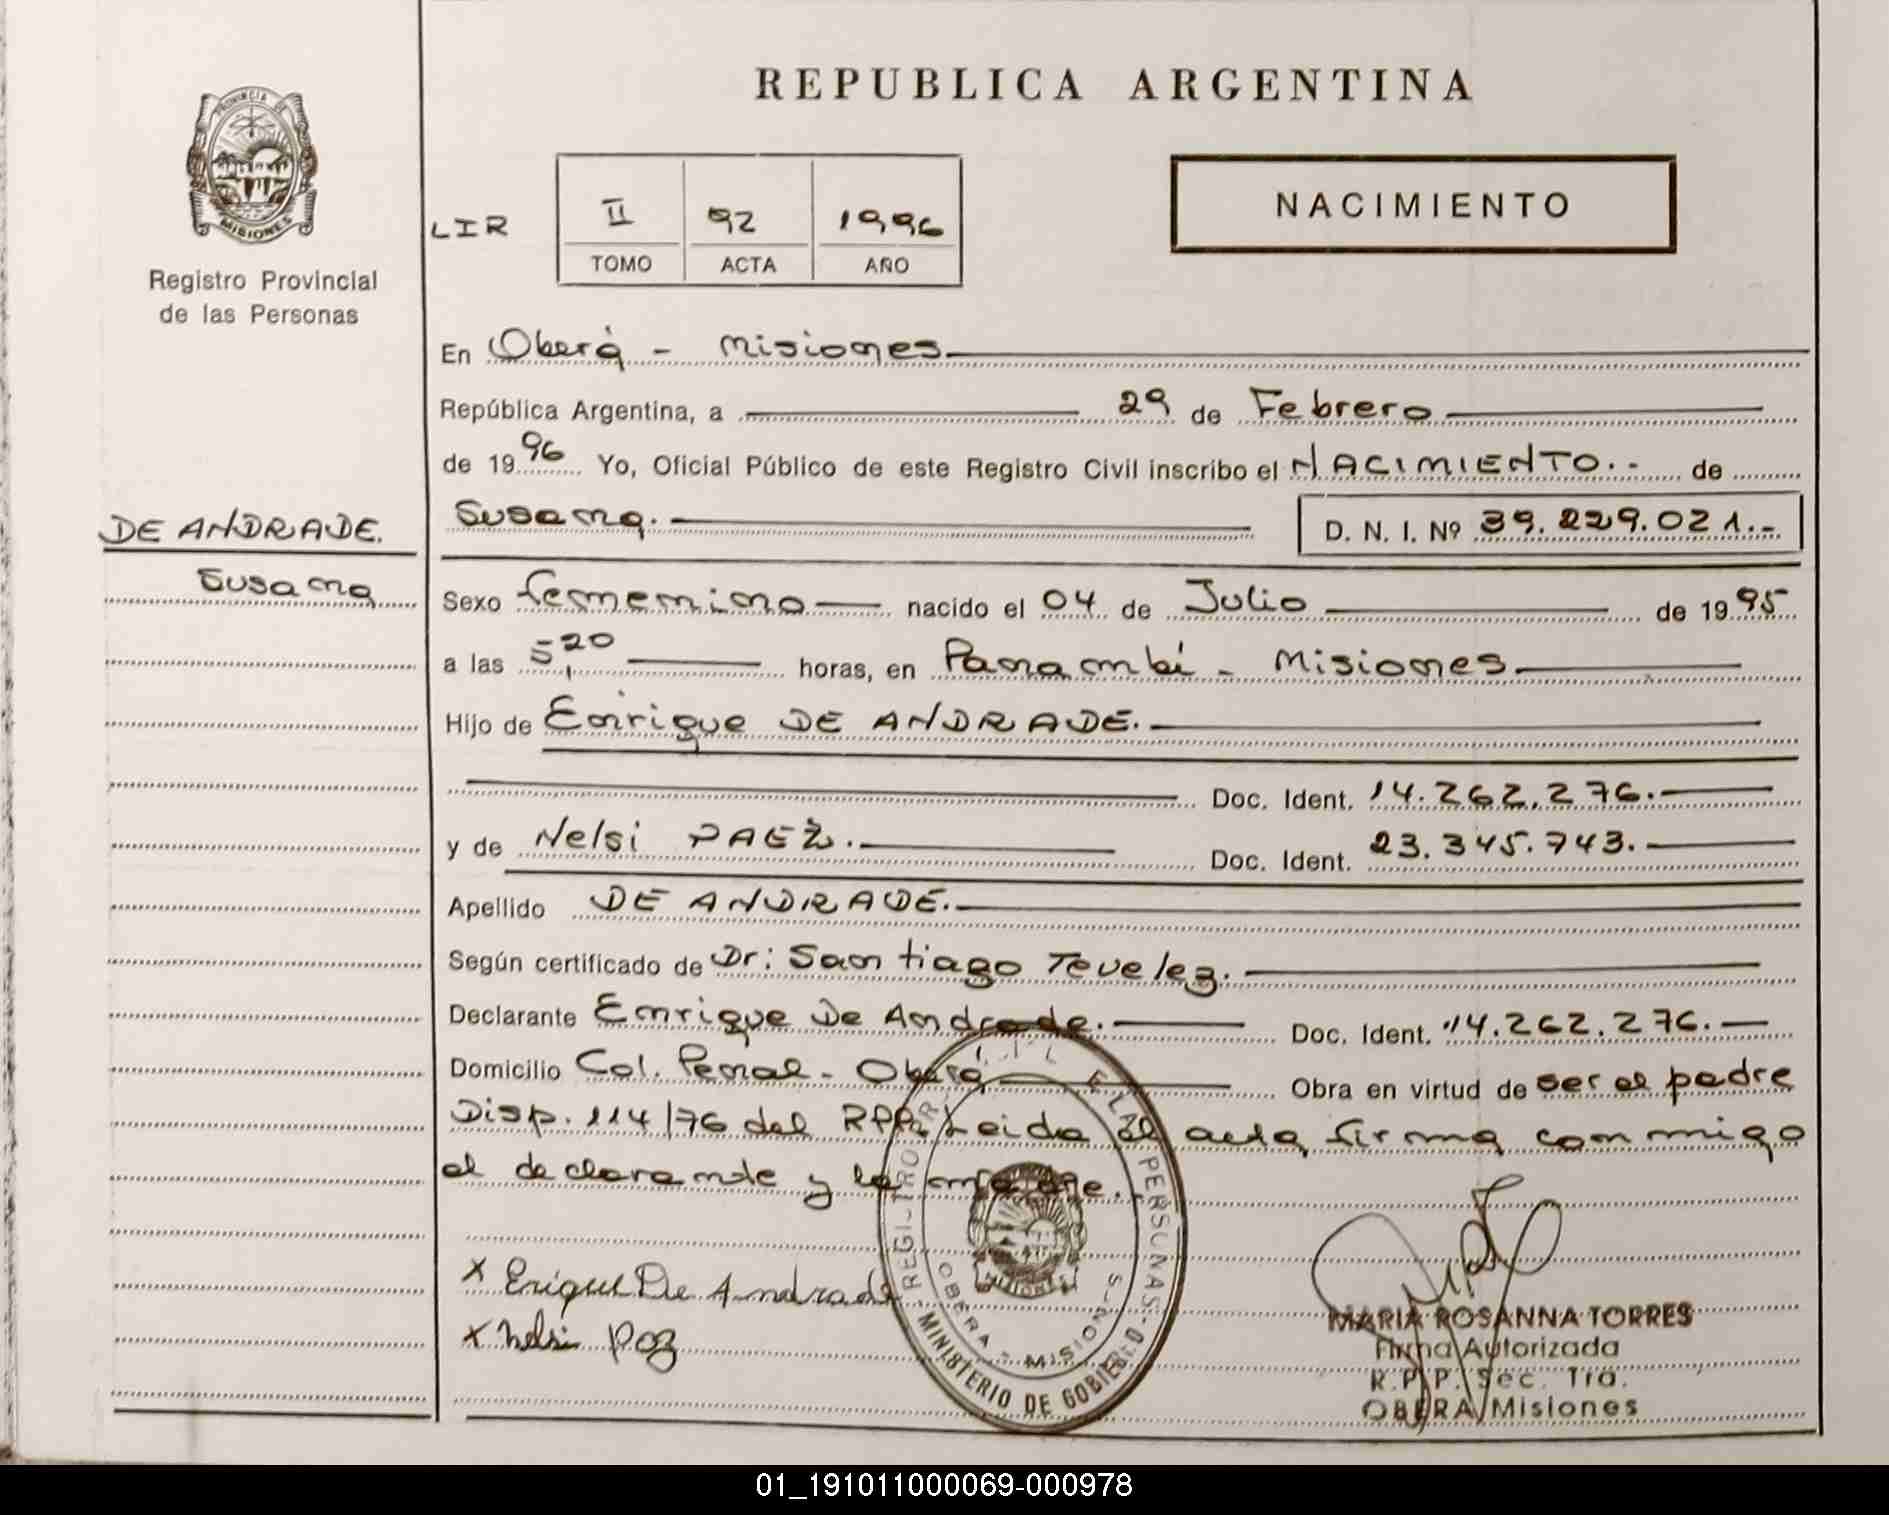 REPUBLICA ARGENTINA
PROVINCIA DE
MISIONES
Registro Provincial
de las Personas
LIR
II 92 1996
TOMO ACTA AÑO
NACIMIENTO
En Oberá - Misiones
República Argentina, a 29 de Febrero
de 1996 Yo, Oficial Público de este Registro Civil inscribo el NACIMIENTO.- de
DE ANDRADE.
Susana
Susana. D. N. I. Nº 39.229.021.-
Sexo femenino nacido el 04 de Julio de 1995
a las 5,20 horas, en Panambí - Misiones
Hijo de Enrique DE ANDRADE.
Doc. Ident. 14.262.276.
y de Nelsi PAEZ. Doc. Ident. 23.345.743.
Apellido DE ANDRADE.
Según certificado de Dr: Santiago Tevelez.
Declarante Enrique De Andrade. Doc. Ident. 14.262.276.
Domicilio Col. Penal - Oberá Obra en virtud de ser el padre
Disp. 114/76 del RPP. Leida el acta firma conmigo
el declarante y la madre.
REGISTRO PR LAS PERSONAS
OBERA - MISIONES
MINISTERIO DE GOBIERNO
x Erique De Andrade
x Nelsi Paz
MARIA ROSANNA TORRES
Firma Autorizada
R.P.P. Sec. 1ra.
OBERA Misiones
01_191011000069-000978